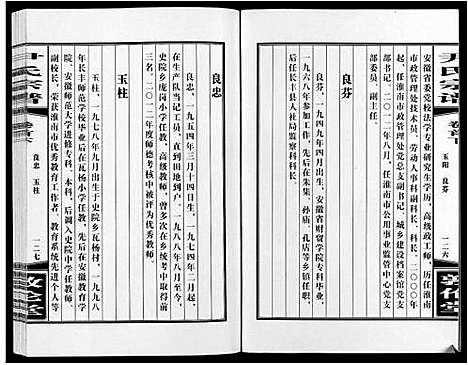 尹氏宗谱
卷首下
玉阳 良芬
一二六
敦伦堂
安徽省委党校法学专业研究生学历，高级政工师，历任淮南
市政管理处技术员、劳动人事科副科长、科长，二〇〇〇年
起，任淮南市市政管理处党总支副书记、城乡建设档案馆党支
部书记，二〇一二年八月，任淮南市公用事业监管中心党支
部委员、副主任。
良芬
良芬，一九四九年九月出生，安徽省财贸学院专科毕业，
一九六八年参加工作，先后在朱集、孙庙、孔店等乡镇任职，
后任长丰县人社局监察科科长。
良忠
良忠，一九五四年三月十四日生，一九七四年二月，
在生产队当记工员，直到田地到户，一九八八年八月至今，
史院乡庞岗小学任高级教师，曾多次在乡统考中取得前
三名，二〇一二年度师德考核中被评为优秀教师。
玉柱
玉柱，一九七八年九月出生于史院乡瓦杨村，一九九八
年长丰师范学校毕业后在瓦杨小学任教，先后在安徽教育学
院、安徽师范大学进修专科、本科，后调入史院中学任教师、
副校长，荣获淮南市优秀教育工作者、教育系统先进个人等
尹氏宗谱
卷首下
良忠 玉柱
一二七
敦伦堂